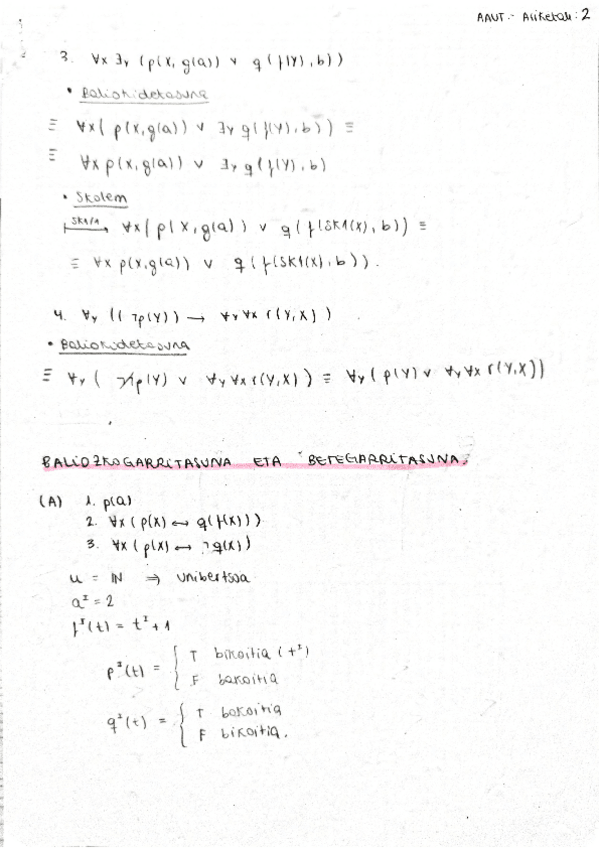 AAUT.- Ariketak: 2
3. ∀x ∃y (p(X, g(a)) ∨ q(f(Y), b))
• Baliokidetasuna
≡ ∀x( p(X, g(a)) ∨ ∃y q(f(Y), b)) ≡
≡ ∀x p(X, g(a)) ∨ ∃y q(f(Y), b)
• Skolem
SK1/1 ⟼ ∀x( p(X, g(a)) ∨ q(f(SK1(X), b)) ≡
≡ ∀x p(X, g(a)) ∨ q(f(SK1(X), b)).
4. ∀y ((¬p(Y)) → ∀y ∀x r(Y,X))
• Baliokidetasuna
≡ ∀y ( p(Y) ∨ ∀y ∀x r(Y,X)) ≡ ∀y (p(Y) ∨ ∀y ∀x r(Y,X))
BALIOZKOGARRITASUNA ETA BETEGARRITASUNA.
(A) 1. p(a)
2. ∀x (p(X) ↔ q(f(X)))
3. ∀x (p(X) ↔ ¬q(X))
U = ℕ ⇒ unibertsoa
aᴵ = 2
fᴵ(t) = tᴵ + 1
pᴵ(t) = { T bikoitia (tᴵ)
F bakoitia
qᴵ(t) = { T bakoitia
F bikoitia.